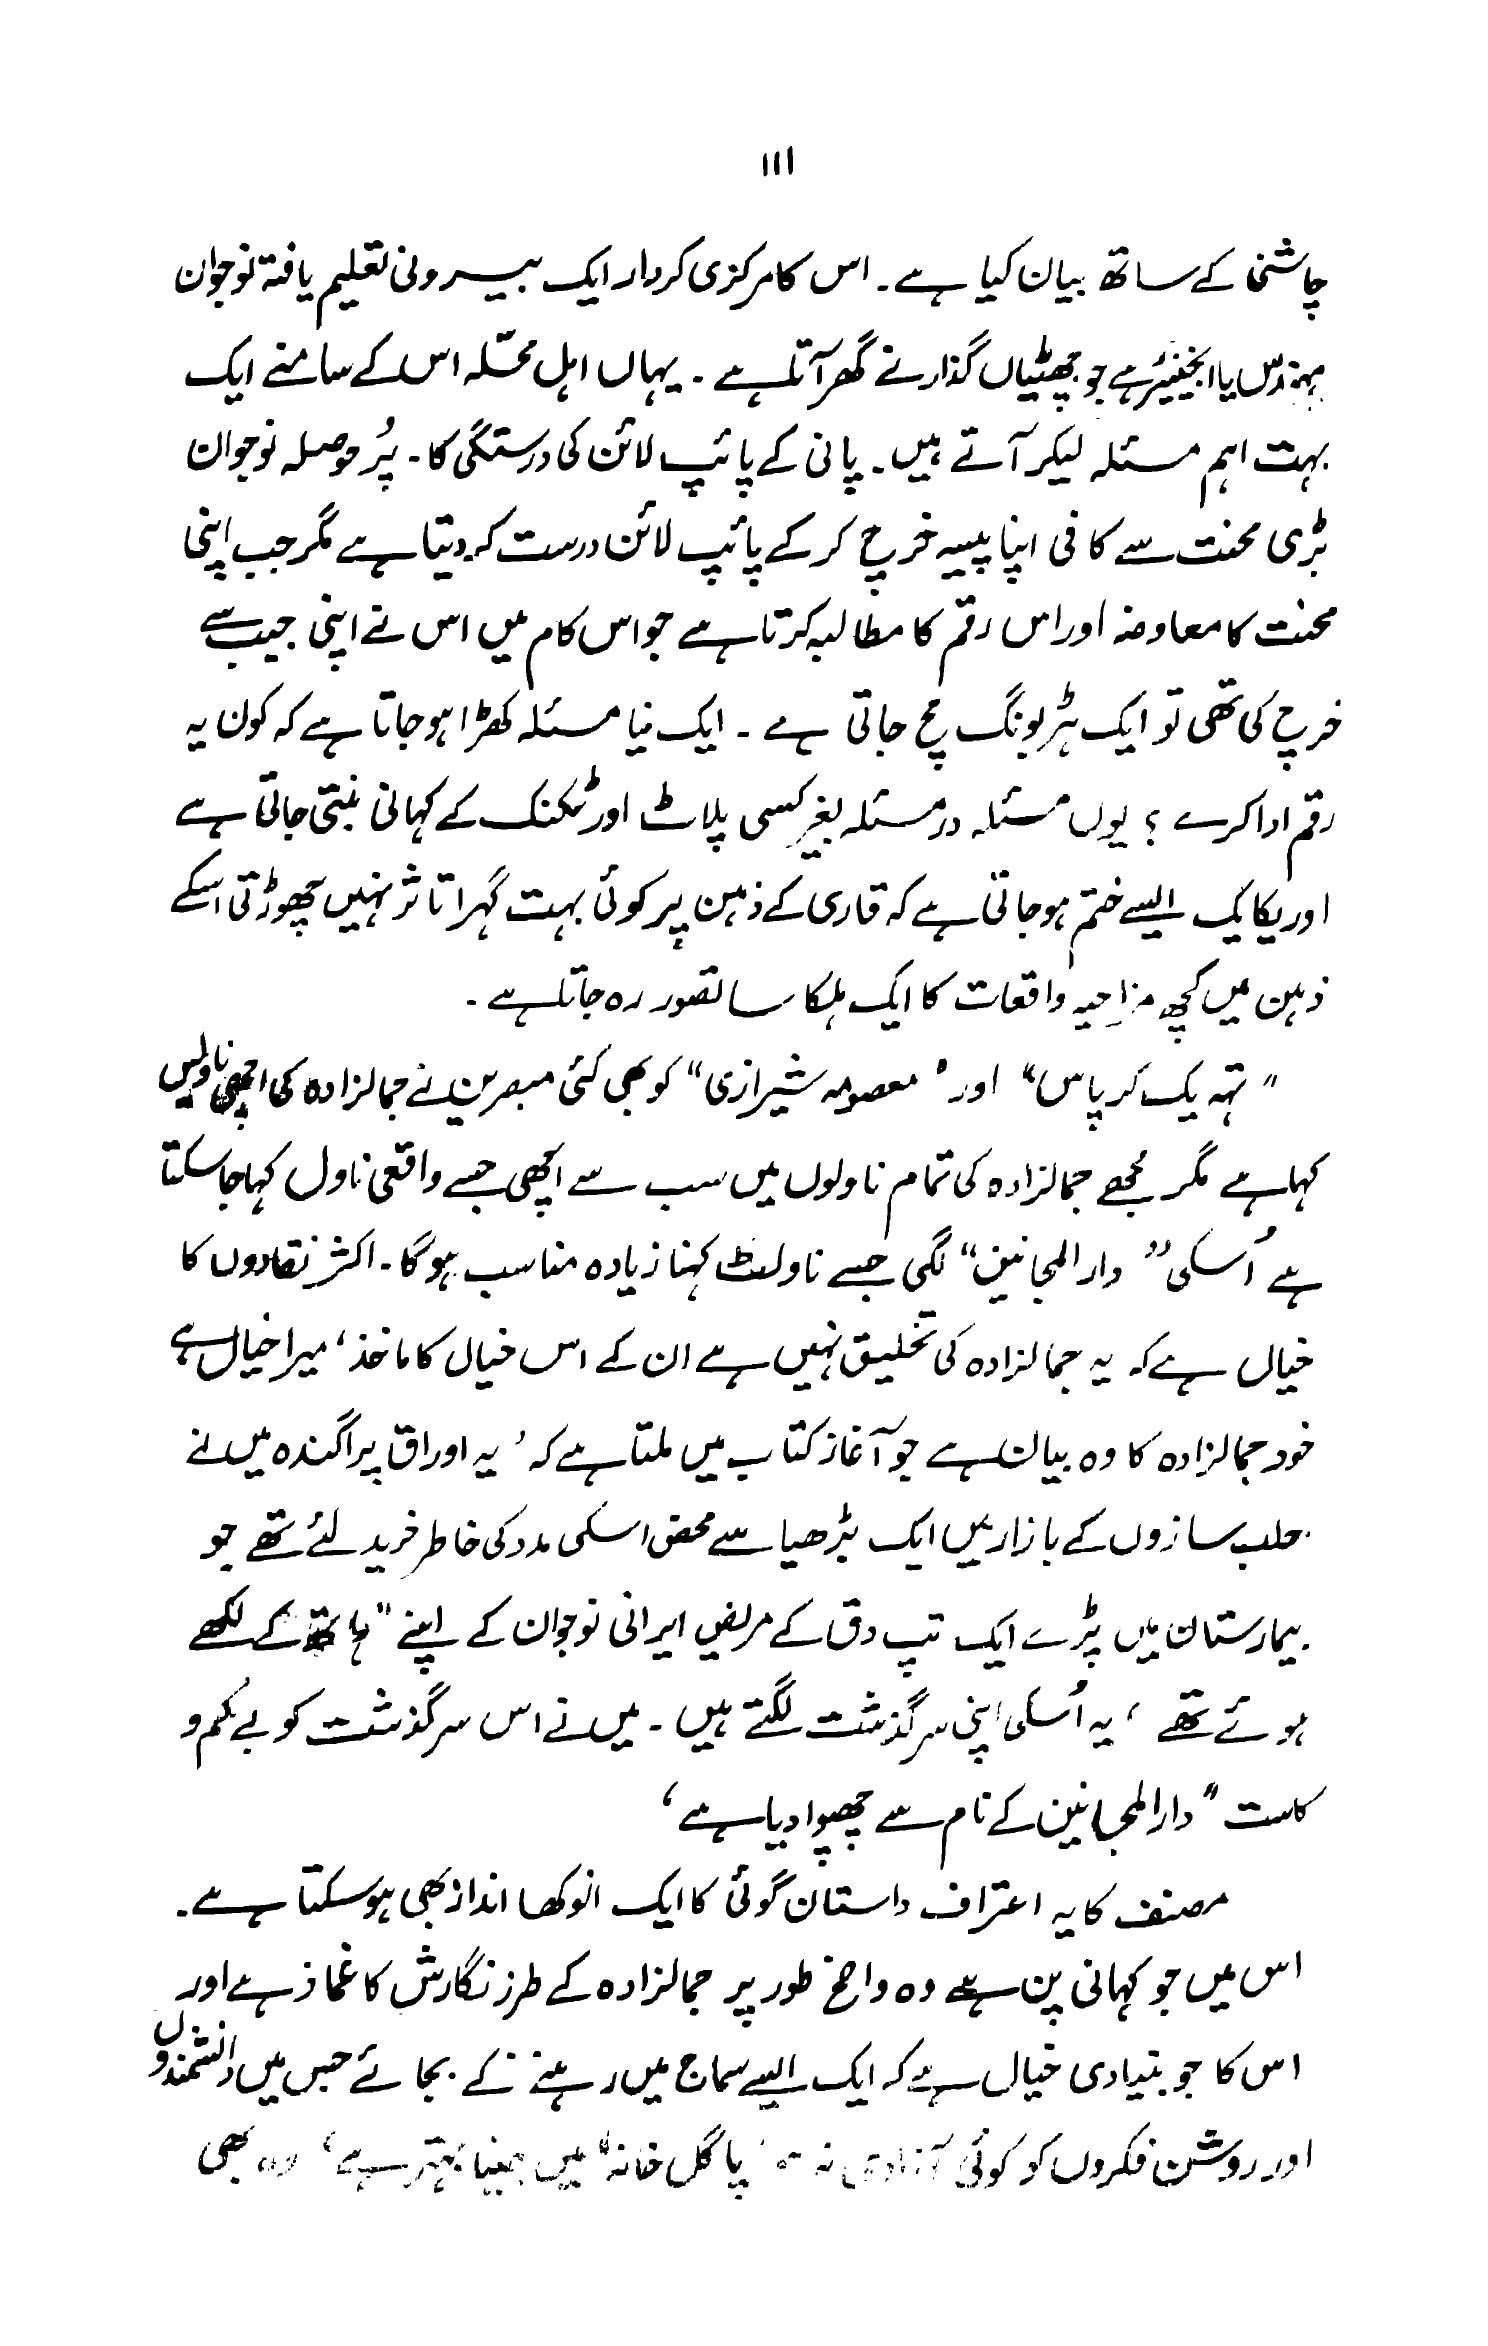 ۱۱۱
چاشنی کے ساتھ بیان کیا ہے۔ اس کا مرکزی کردار ایک بیرونی تعلیم یافتہ نوجوان
مہندس یا انجینئر ہے جو چھٹیاں گذارنے گھر آتا ہے۔ یہاں اہل محلّہ اس کے سامنے ایک
بہت اہم مسئلہ لیکر آتے ہیں۔ پانی کے پائپ لائن کی درستگی کا۔ پُر حوصلہ نوجوان
بڑی محنت سے کافی اپنا پیسہ خرچ کر کے پائپ لائن درست کر دیتا ہے مگر جب اپنی
محنت کا معاوضہ اور اس رقم کا مطالبہ کرتا ہے جو اس کام میں اس نے اپنی جیب سے
خرچ کی تھی تو ایک ہڑبونگ مچ جاتی ہے ۔ ایک نیا مسئلہ کھڑا ہو جاتا ہے کہ کون یہ
رقم ادا کرے ؟ یوں مسئلہ در مسئلہ بغیر کسی پلاٹ اور ٹکنک کے کہانی بنتی جاتی ہے
اور یکایک ایسے ختم ہو جاتی ہے کہ قاری کے ذہن پر کوئی بہت گہرا تاثر نہیں چھوڑتی اسکے
ذہن میں کچھ مزاحیہ واقعات کا ایک ہلکا سا تصور رہ جاتا ہے ۔
" تہہ یک کرپاس" اور " معصومہ شیرازی" کو بھی کئی مبصرین نے جمالزادہ کی اچھی ناولیں
کہا ہے مگر مجھے جمالزادہ کی تمام ناولوں میں سب سے اچھی جسے واقعی ناول کہا جا سکتا
ہے اُسکی " دار المجانین" لگی جسے ناولٹ کہنا زیادہ مناسب ہوگا۔ اکثر نقادوں کا
خیال ہے کہ یہ جمالزادہ کی تخلیق نہیں ہے ان کے اس خیال کا ماخذ، میرا خیال ہے
خود جمالزادہ کا وہ بیان ہے جو آغاز کتاب میں ملتا ہے کہ ' یہ اوراق پراگندہ میں نے
حلب سازوں کے بازار میں ایک بڑھیا سے محض اسکی مدد کی خاطر خرید لئے تھے جو
بیمارستان میں پڑے ایک تپ دق کے مریض ایرانی نوجوان کے اپنے " ہاتھ کے لکھے
ہوئے تھے ، یہ اُسکی اپنی سرگذشت لگتے ہیں ۔ میں نے اس سرگذشت کو بے کم و
کاست " دارالمجانین کے نام سے چھپوا دیا ہے '
مصنف کا یہ اعتراف داستان گوئی کا ایک انوکھا انداز بھی ہو سکتا ہے۔
اس میں جو کہانی پن ہے وہ واضح طور پر جمالزادہ کے طرز نگارش کا غماز ہے اور
اس کا جو بنیادی خیال ہے کہ ایک ایسے سماج میں رہنے کے بجائے جس میں دانشمندوں
اور روشن فکروں کو کوئی آزادی نہ پاگل خانہ" میں جینا بہتر ہے ' وہ بھی